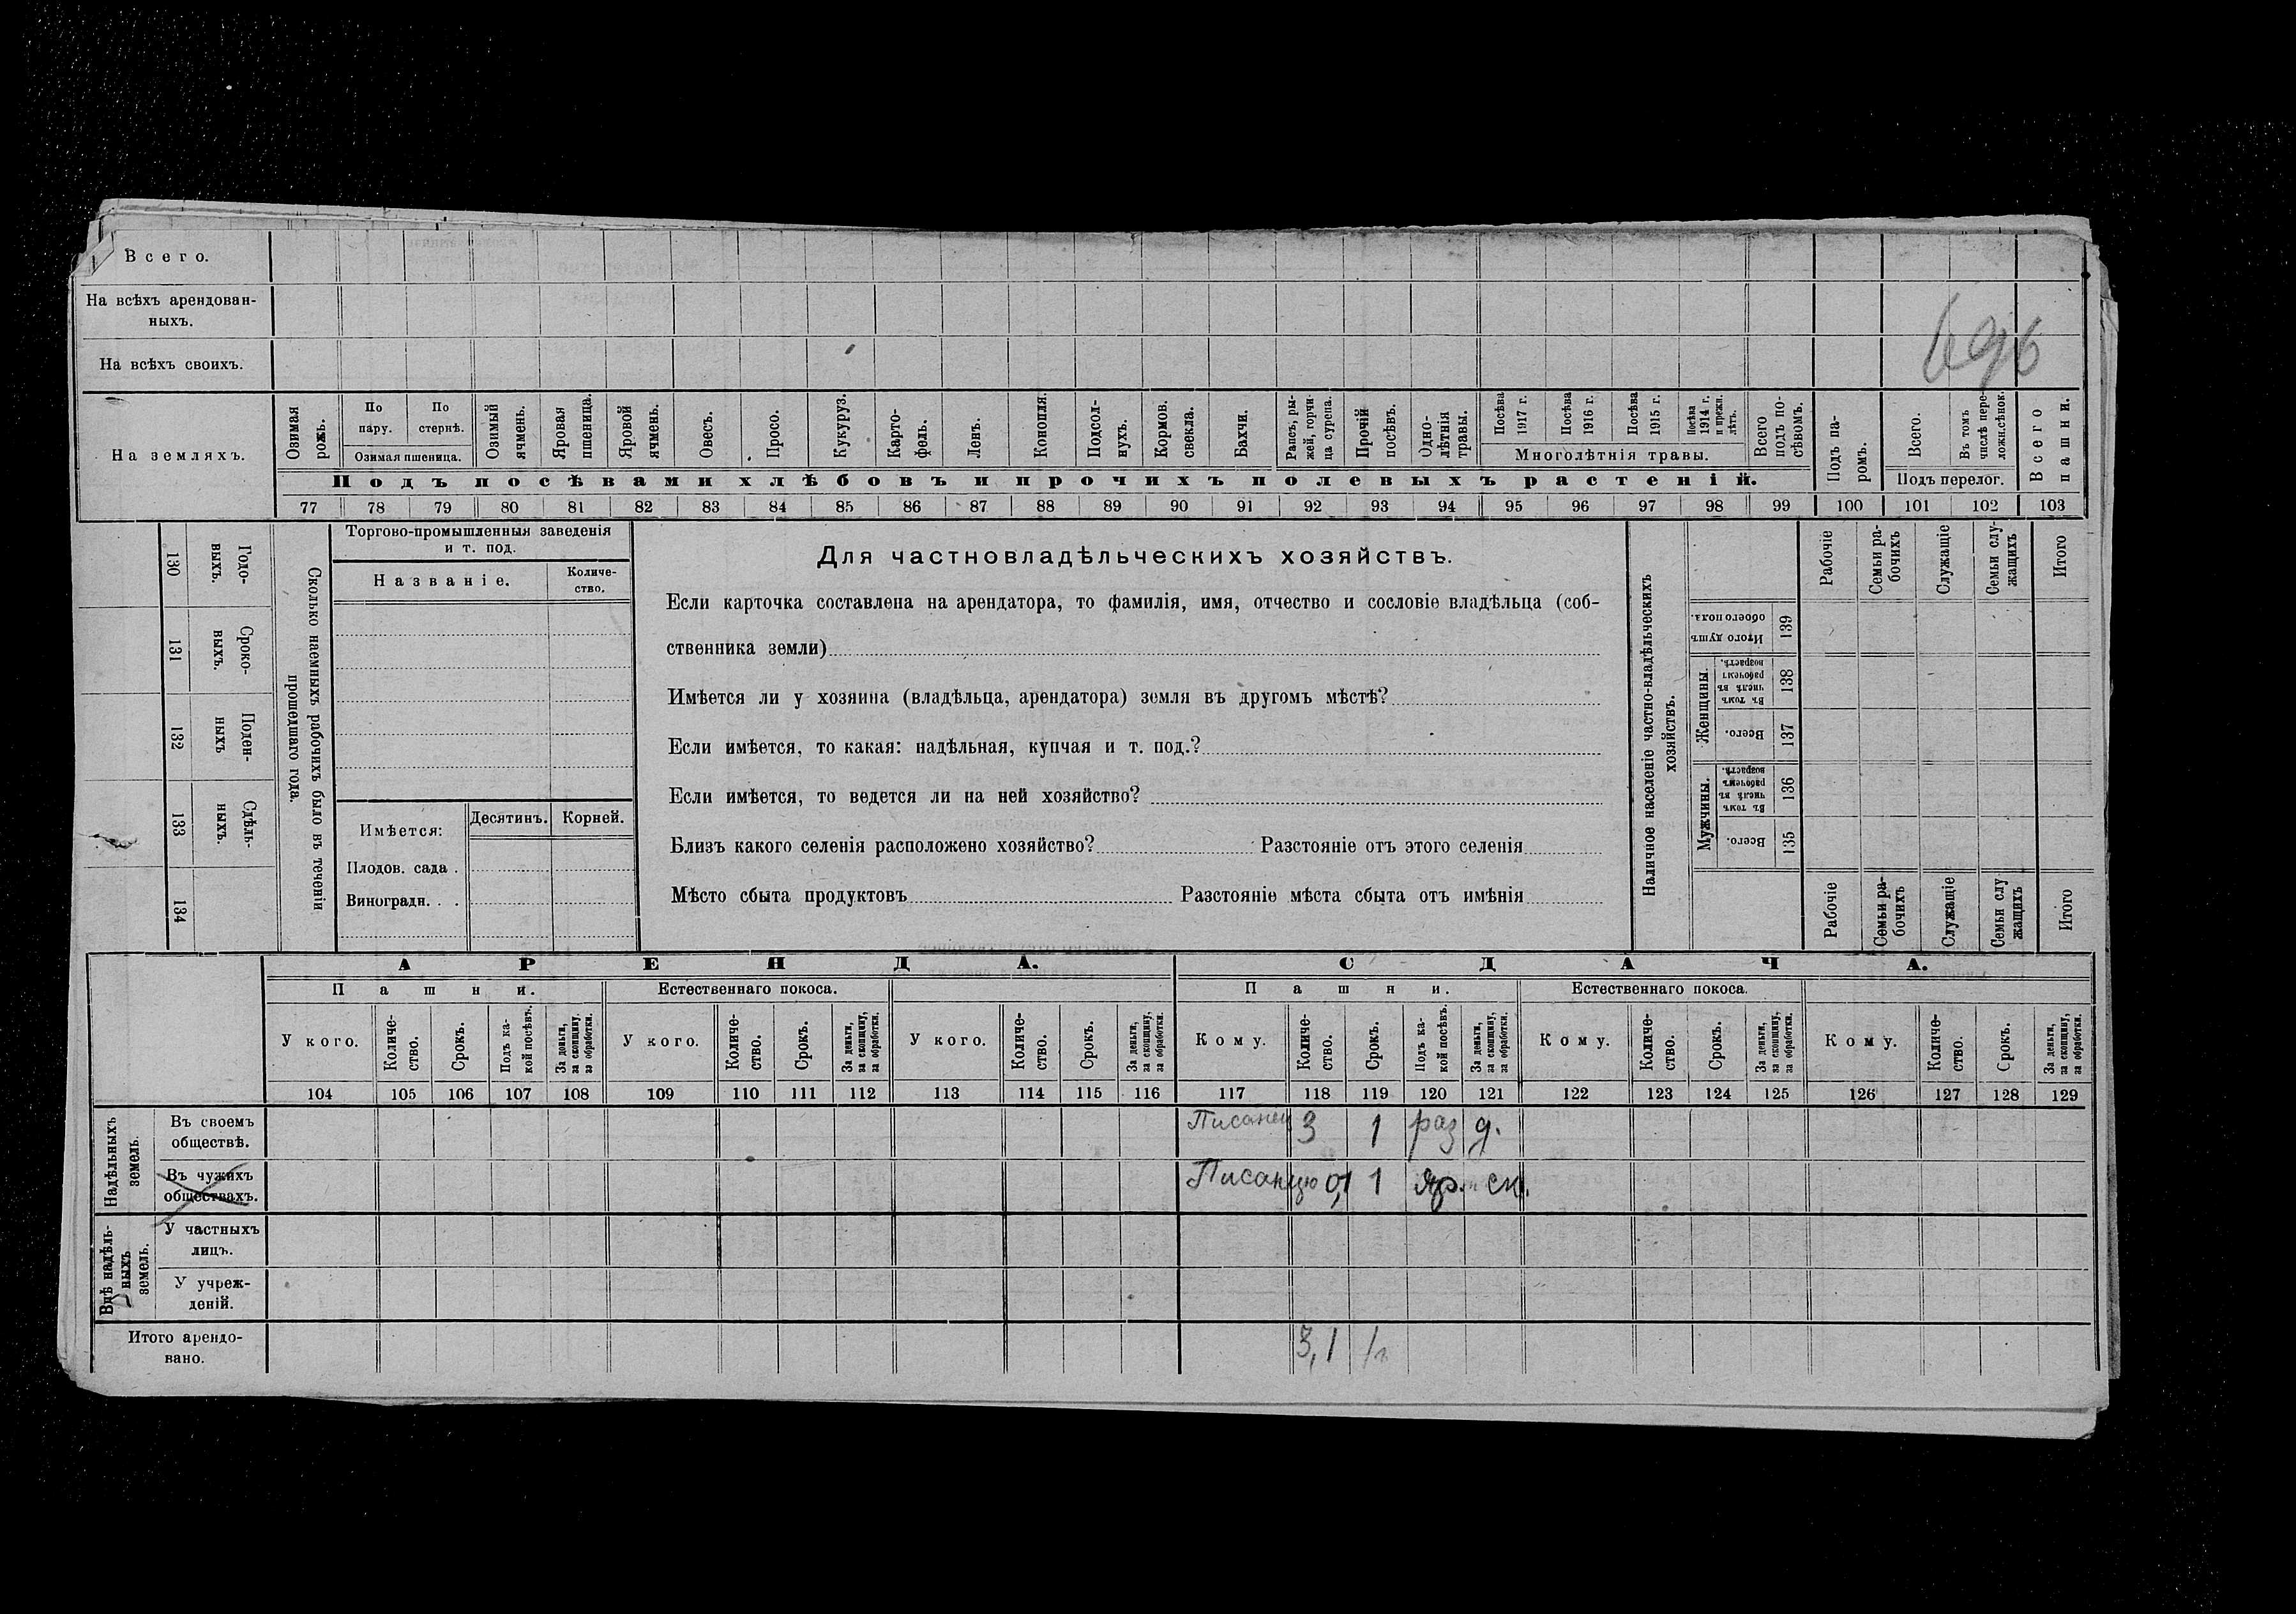 Всего.
На всѣхъ арендован-
ныхъ.
На всѣхъ своихъ.
696
На земляхъ.
Озимая рожь.
По пару.
По стернѣ.
Озимая пшеница.
Озимый ячмень.
Яровая пшеница.
Яровой ячмень.
Овесъ.
Просо.
Кукуруз.
Карто-
фель.
Ленъ.
Конопля.
Подсол-
нухъ.
Кормов. свекла.
Бахчи.
Рапсъ, ры-
жей, горчи-
ца сурепа.
Прочій посѣвъ.
Одно-
лѣтнія травы.
Посѣва 1917 г.
Посѣва 1916 г.
Посѣва 1915 г.
Посѣва 1914 г. и прежн. лѣтъ.
Многолѣтнія травы.
Всего подъ по-
сѣвомъ.
Подъ па-
ромъ.
Всего.
Въ томъ числѣ пере-
ложн.сѣнок.
Подъ перелог.
Всего пашни.
Подъ посѣвами хлѣбовъ и прочихъ полевыхъ растеній.
77 78 79 80 81 82 83 84 85 86 87 88 89 90 91 92 93 94 95 96 97 98 99 100 101 102 103
130 Годо-
выхъ.
131 Сроко-
выхъ.
132 Поден-
ныхъ
133 Сдѣль-
ныхъ.
134
Сколько наемныхъ рабочихъ было въ теченіи
прошедшаго года.
Торгово-промышленныя заведенія
и т. под.
Названіе.
Количе-
ство.
Имѣется:
Десятинъ.
Корней.
Плодов. сада .
Виноградн. . .
Для частновладѣльческихъ хозяйствъ.
Если карточка составлена на арендатора, то фамилія, имя, отчество и сословіе владѣльца (соб-
ственника земли)
Имѣется ли у хозяина (владѣльца, арендатора) земля въ другомъ мѣстѣ?
Если имѣется, то какая: надѣльная, купчая и т. под.?
Если имѣется, то ведется ли на ней хозяйство?
Близъ какого селенія расположено хозяйство? Разстояніе отъ этого селенія
Мѣсто сбыта продуктовъ Разстояніе мѣста сбыта отъ имѣнія
Наличное населеніе частно-владѣльческихъ
хозяйствъ.
Рабочіе
Семьи ра-
бочихъ
Служащіе
Семьи слу-
жащихъ
Итого
Итого душъ обоего пола. 139
Женщины.
Въ томъ числѣ въ рабочемъ возрастѣ. 138
Всего. 137
Мужчины.
Въ томъ числѣ въ рабочемъ возрастѣ. 136
Всего. 135
Рабочіе
Семьи ра-
бочихъ
Служащіе
Семьи слу
жащихъ
Итого
АРЕНДА.
СДАЧА.
Пашни.
Естественнаго покоса.
Пашни.
Естественнаго покоса.
У кого.
Количе-
ство.
Срокъ.
Подъ ка-
кой посѣвъ.
За деньги,
за скопщину,
за обработки.
У кого.
Количе-
ство.
Срокъ.
За деньги,
за скопщину,
за обработки.
У кого.
Количе-
ство.
Срокъ.
За деньги,
за скопщину,
за обработки.
Кому.
Количе-
ство.
Срокъ.
Подъ ка-
кой посѣвъ.
За деньги,
за скопщину,
за обработки.
Кому.
Количе-
ство.
Срокъ.
За деньги,
за скопщину,
за обработки.
Кому.
Количе-
ство.
Срокъ.
За деньги,
за скопщину,
за обработки.
104 105 106 107 108 109 110 111 112 113 114 115 116 117 118 119 120 121 122 123 124 125 126 127 128 129
Надѣльныхъ
земель.
Въ своемъ
обществѣ.
3 1 раз д.
Въ чужихъ
обществахъ.
Писанцю 0,1 1 яр. ск.
Внѣ надѣль-
ныхъ
земель.
У частныхъ
лицъ.
У учреж-
деній.
Итого арендо-
вано.
3,1